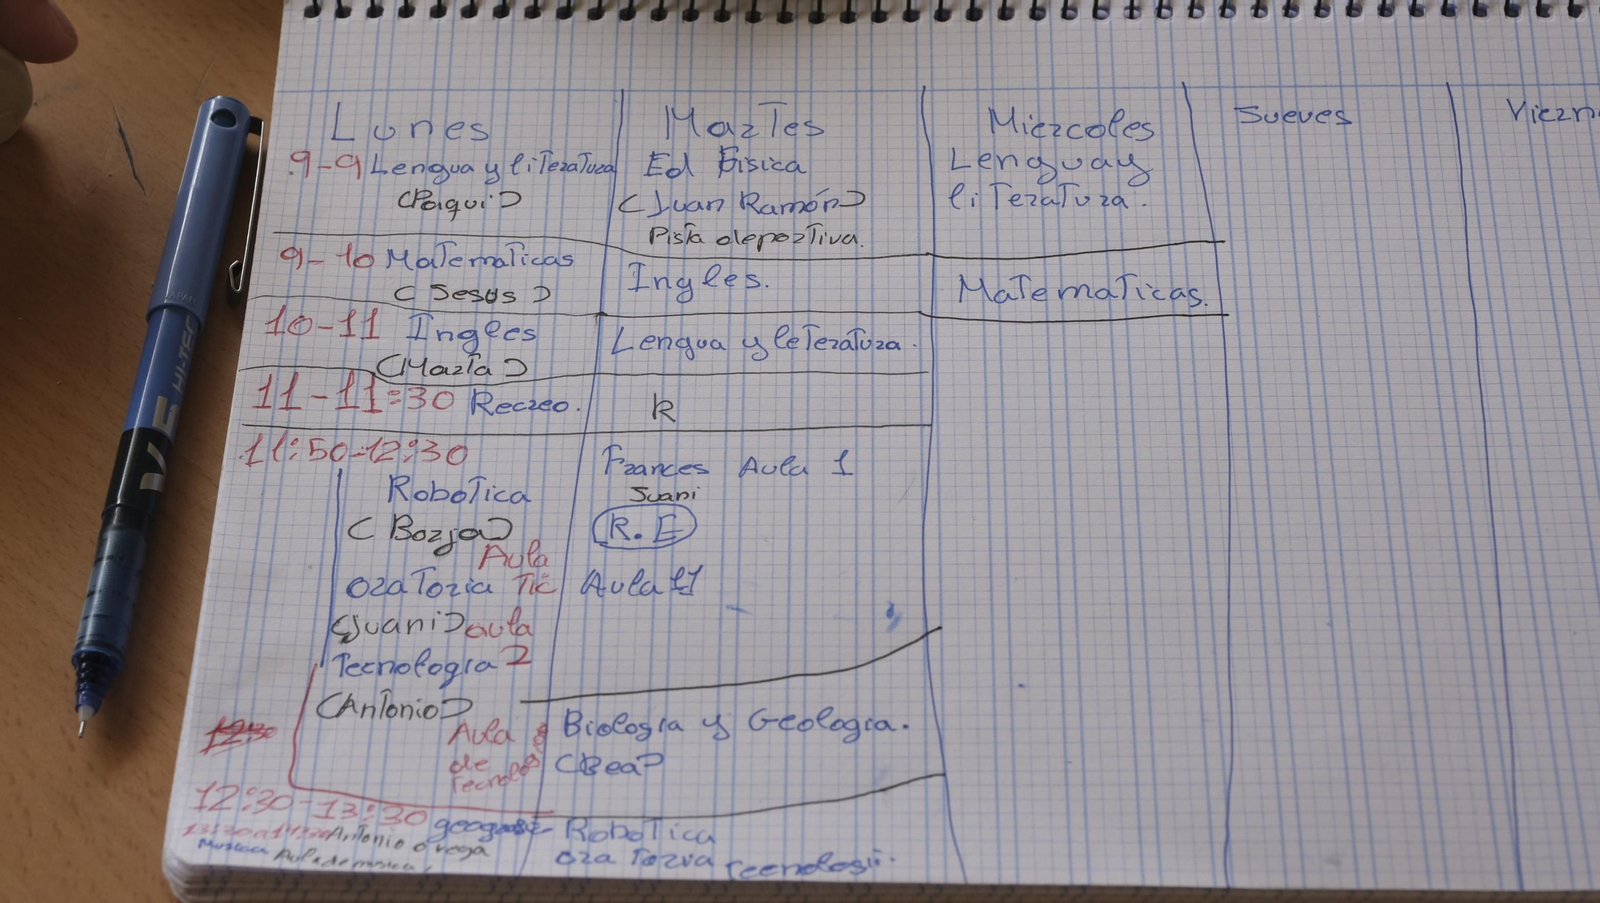 Lunes
Martes
Miercoles
Jueves
9-9 Lengua y literatura
(Paqui)
Ed Fisica
(Juan Ramón)
Pista deportiva.
Lengua y
literatura.
9-10 Matematicas
(Jesus)
Ingles.
Matematicas.
10-11 Ingles
(Marta)
Lengua y leteratura.
11-11:30 Recreo.
R
11:50-12:30
Robotica
(Borja)
Aula
Tic
oratoria
(Juani) aula
2
Tecnologia
(Antonio)
Aula
de
Tecnolo
Frances Aula 1
Juani
R.E
Aula 11
Biologia y Geologia.
(Bea)
12:30
12:30-13:30
13:30 a 14:30 Antonio o vega
Musica Aula de musica
Robotica
oratoria Tecnologi
V5
HI-TEC
JAPAN